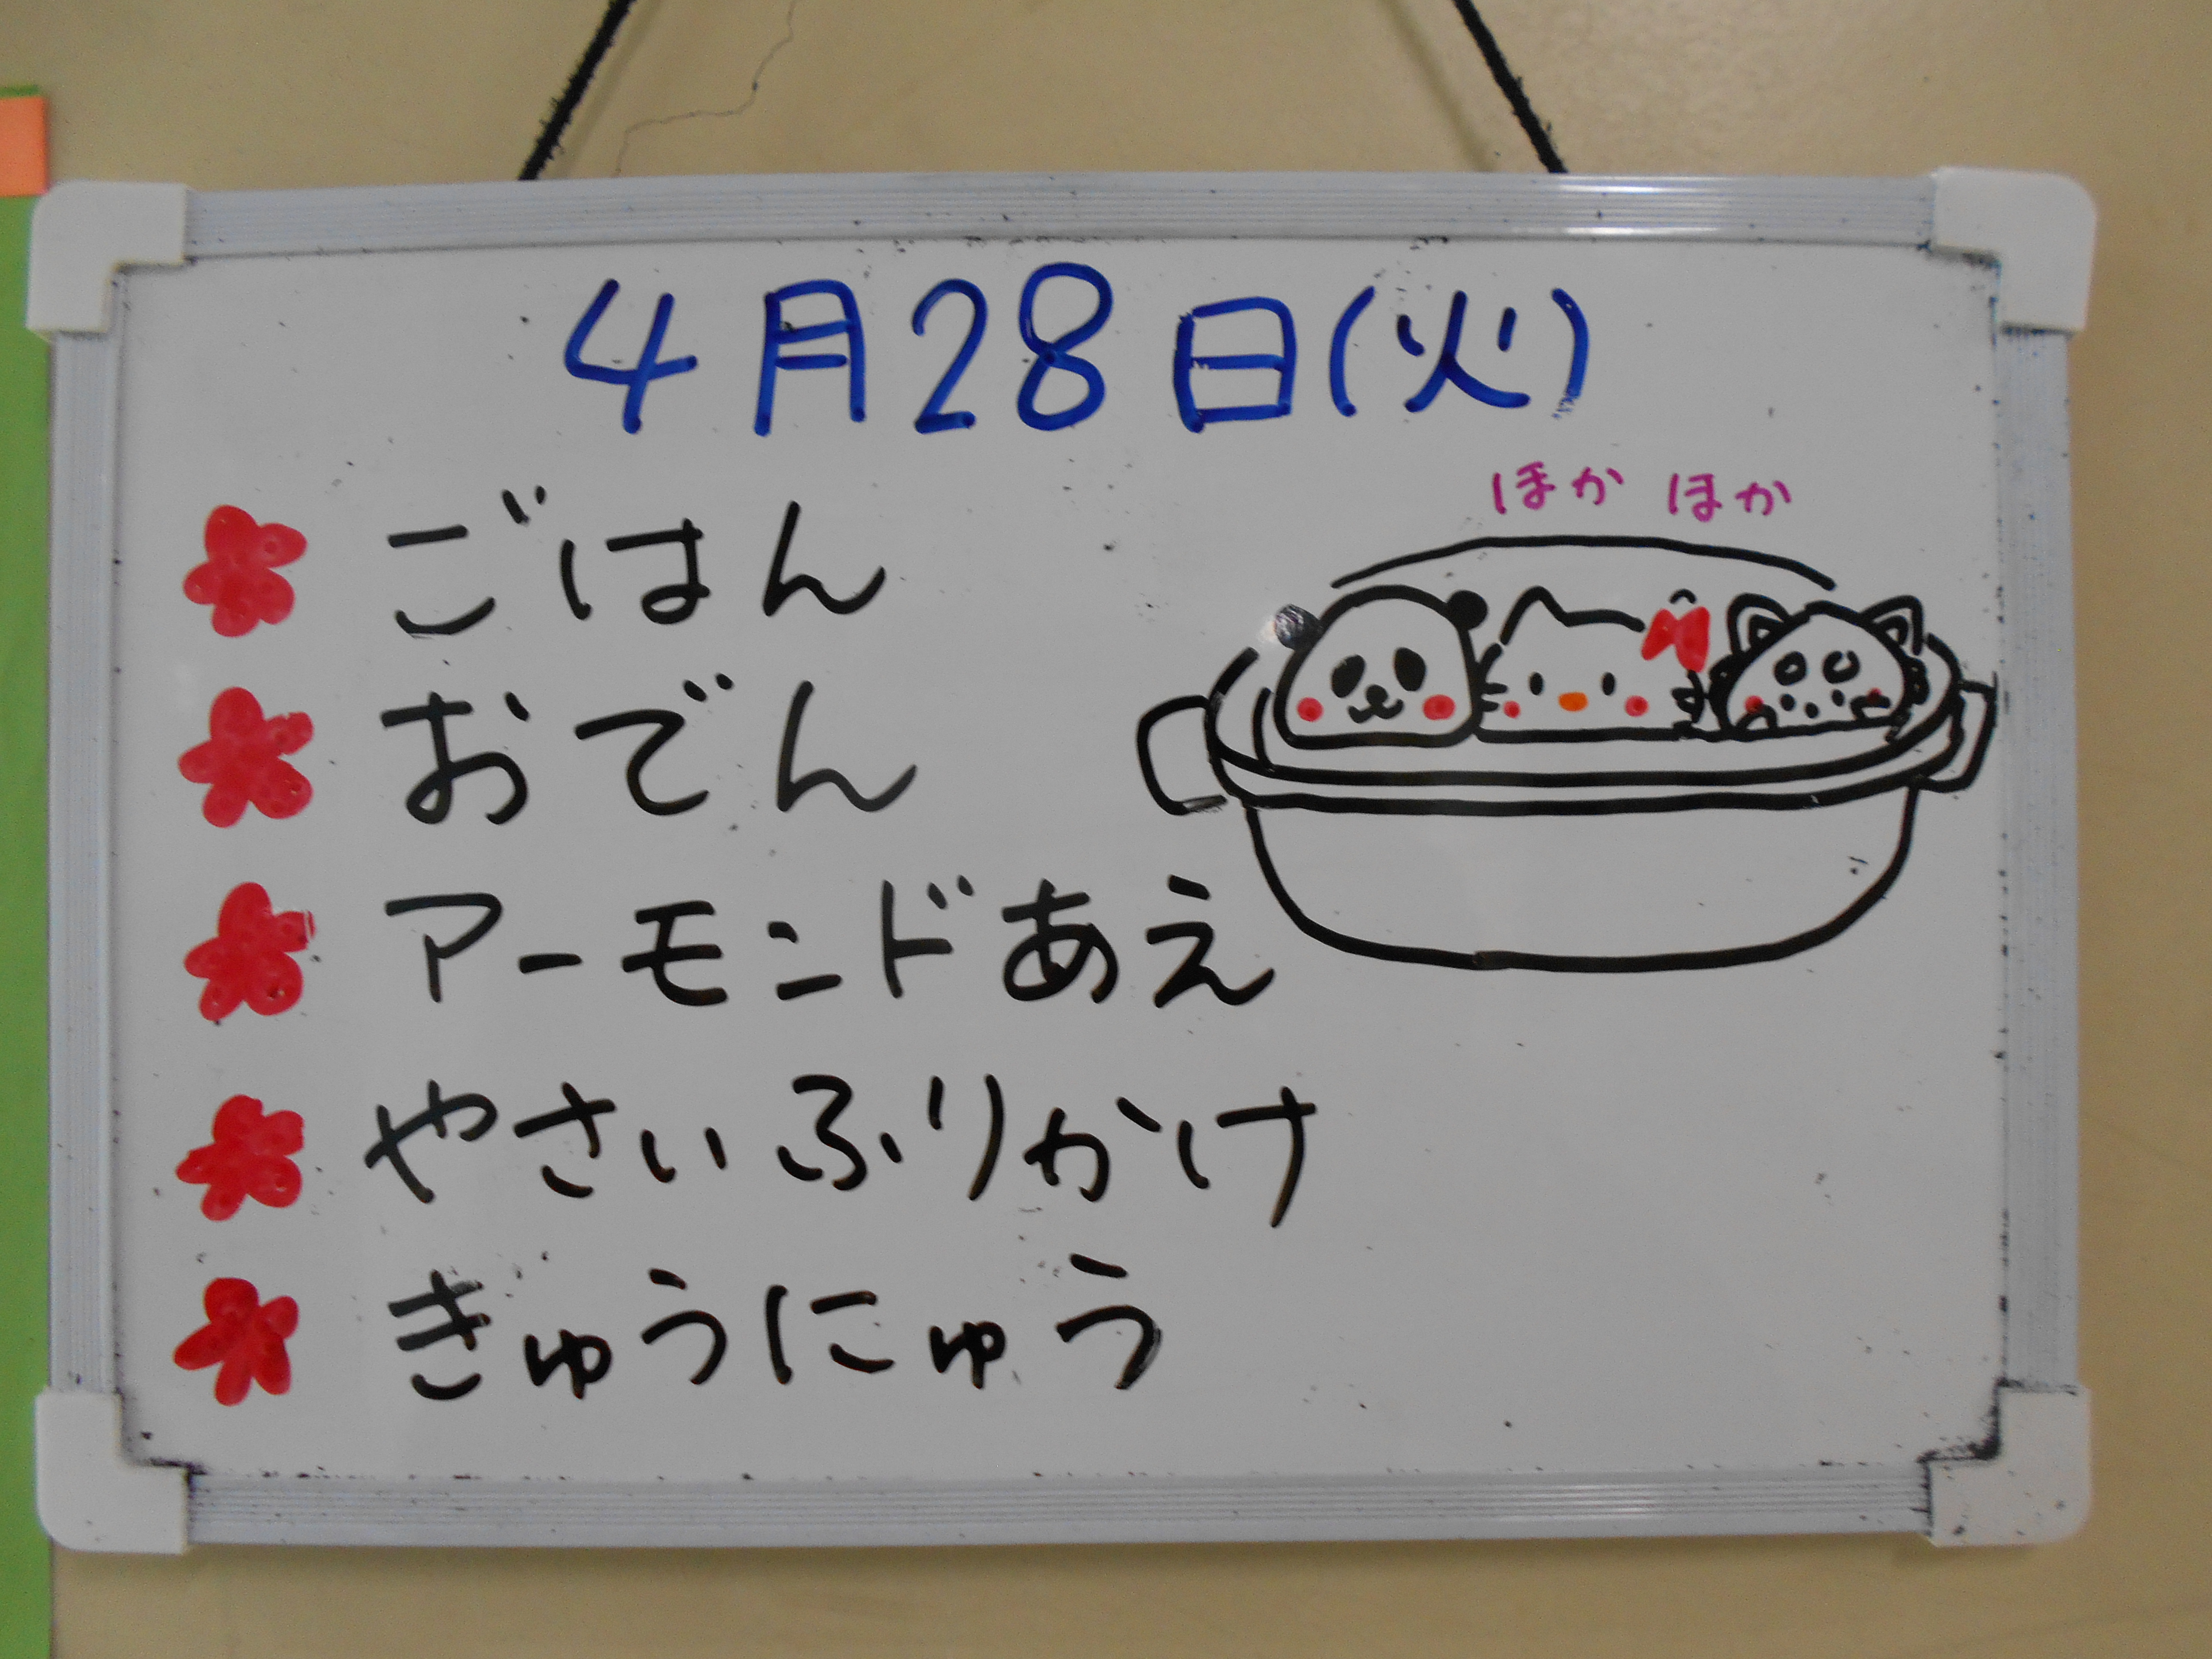 4月28日(火)
ほかほか
ごはん
おでん
アーモンドあえ
やさいふりかけ
きゅうにゅう